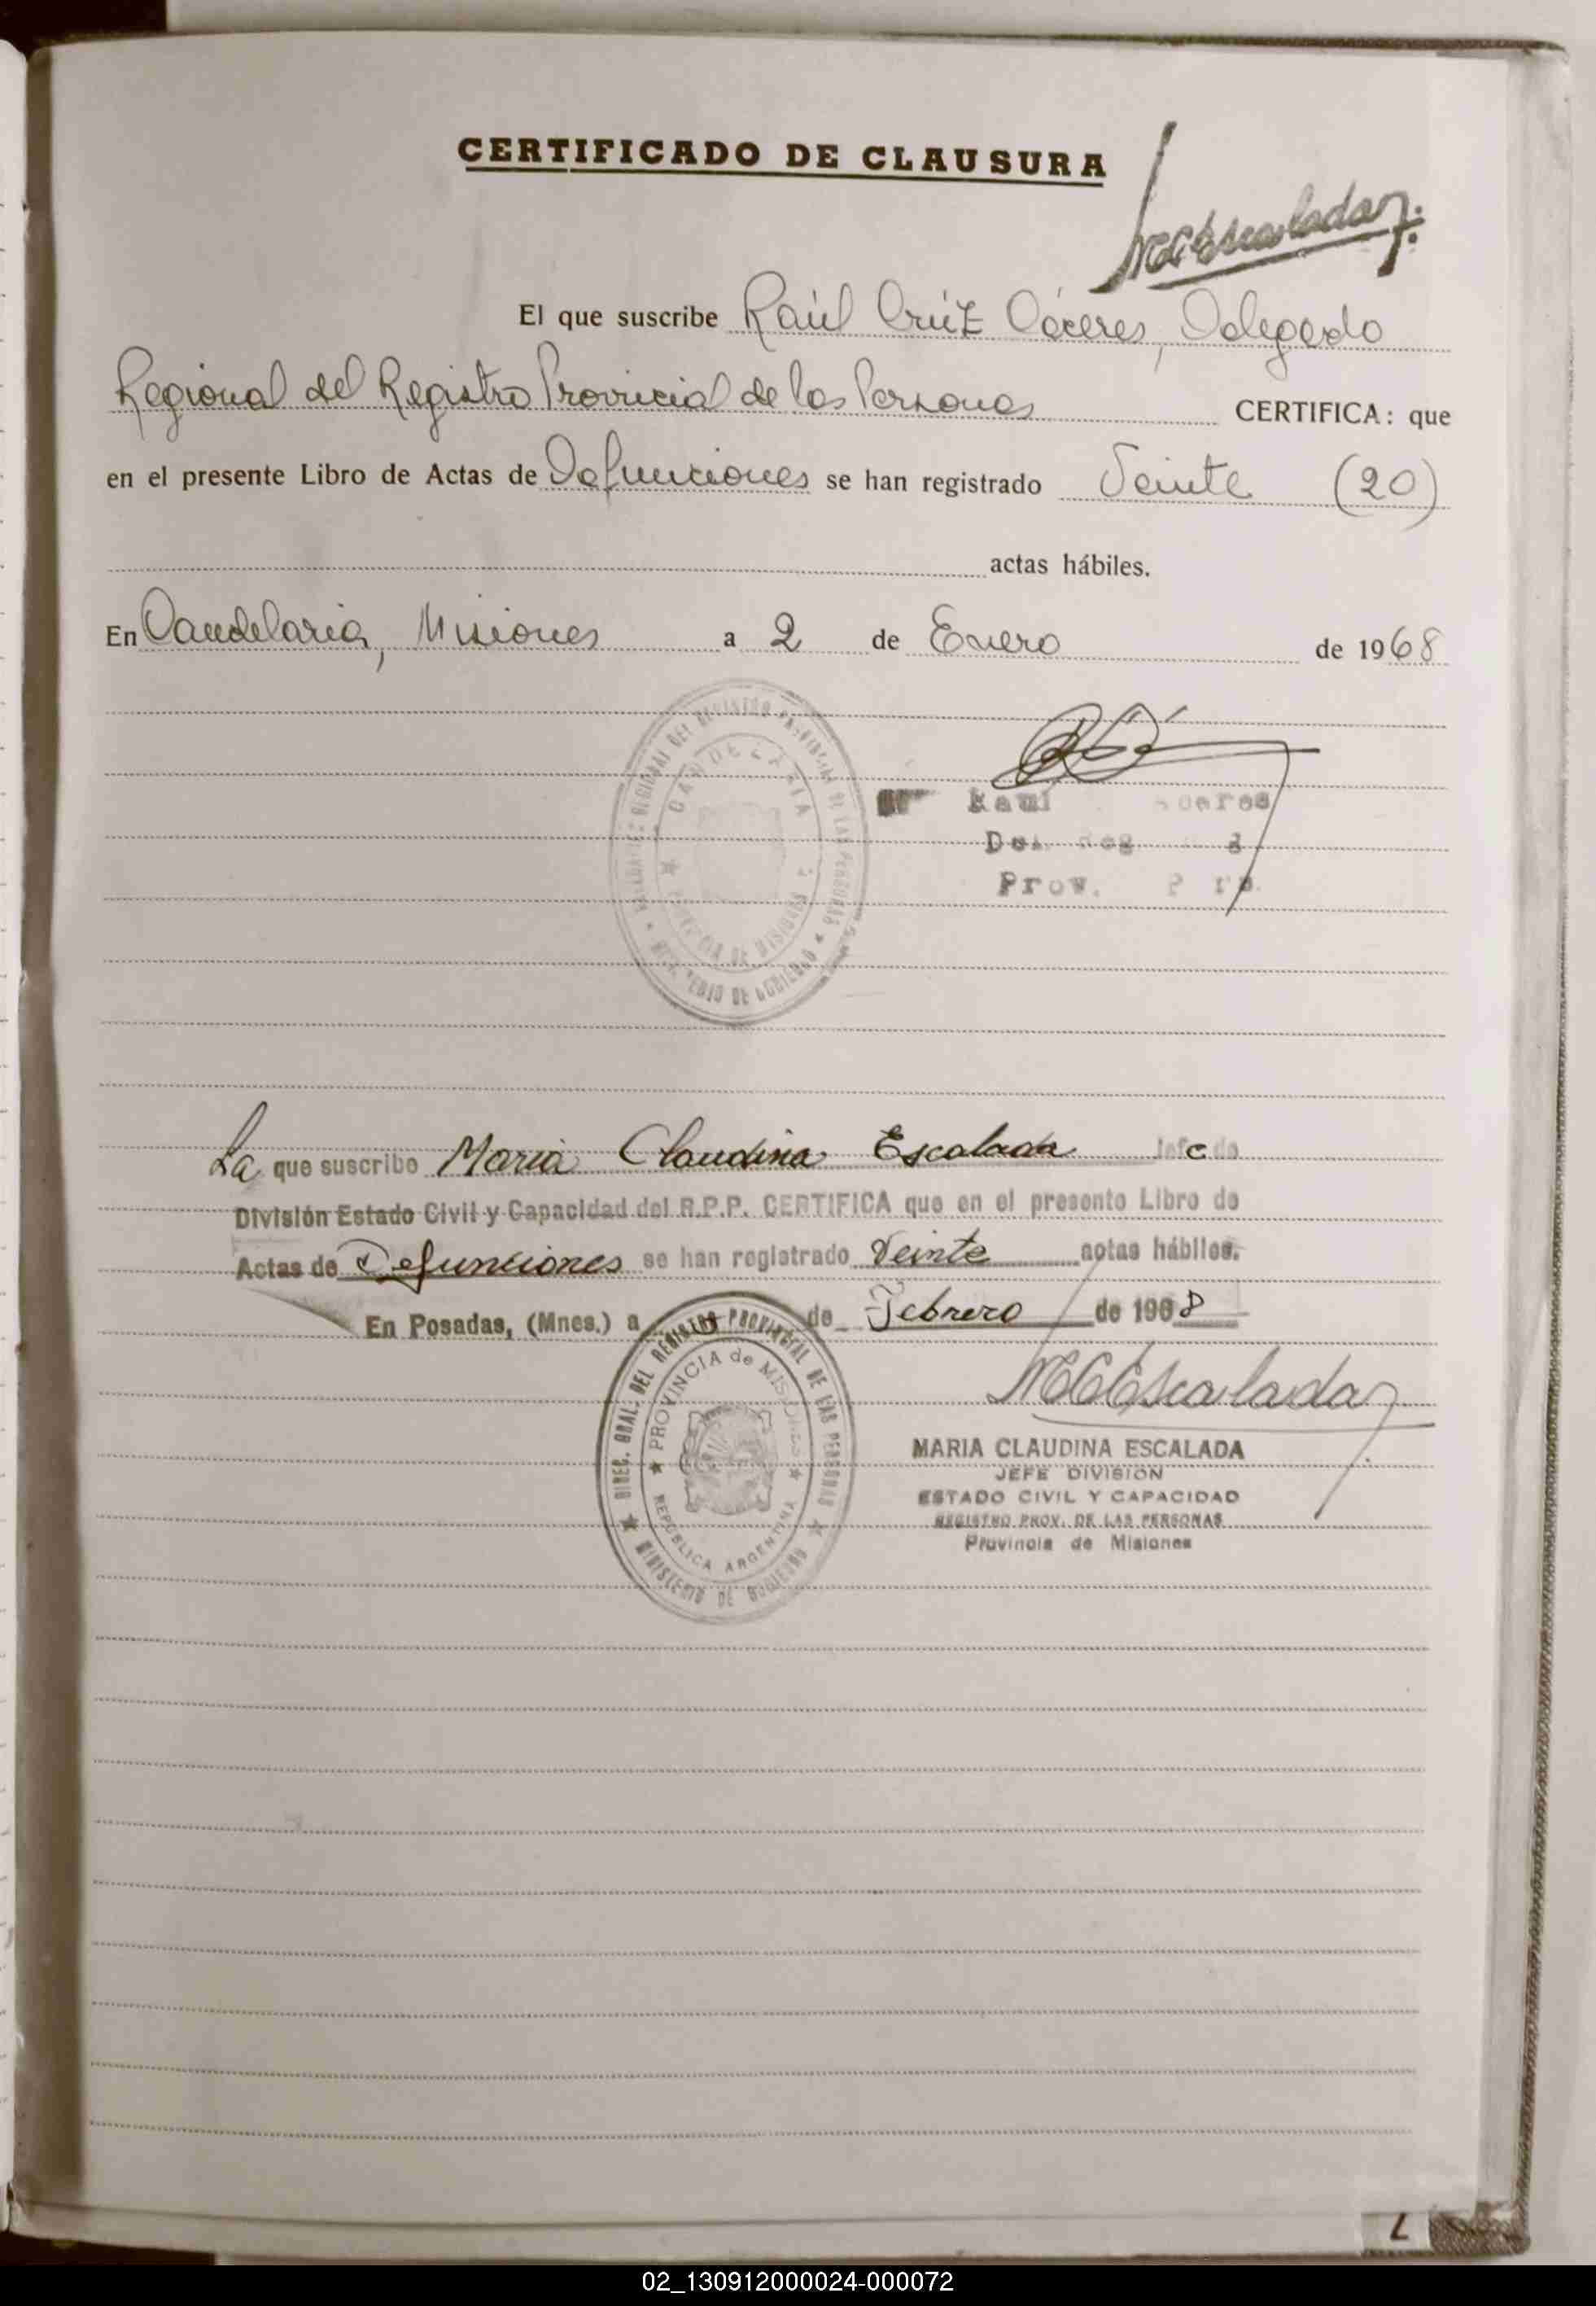 CERTIFICADO DE CLAUSURA
MCEscalada
El que suscribe Raúl Crúz Cáceres, Delegado
Regional del Registro Provincial de las Personas CERTIFICA: que
en el presente Libro de Actas de Defunciones se han registrado Veinte (20)
actas hábiles.
En Candelaria, Misiones a 2 de Enero de 1968
DEL REGISTRO PROVINCIAL DE LAS PERSONAS
CANDELARIA
PROVINCIA DE MISIONES
MINISTERIO DE GOBIERNO
Raul
Prov.
La que suscribe Maria Claudina Escalada Jefe de
División Estado Civil y Capacidad del R.P.P. CERTIFICA que en el presente Libro de
Actas de Defunciones se han registrado Veinte actas hábiles.
En Posadas, (Mnes.) a de Febrero de 1968
DIREC. GRAL. DEL REGISTRO PROVINCIAL DE LAS PERSONAS
PROVINCIA de MISIONES
REPUBLICA ARGENTINA
MINISTERIO DE GOBIERNO
MCEscalada
MARIA CLAUDINA ESCALADA
JEFE DIVISION
ESTADO CIVIL Y CAPACIDAD
REGISTRO PROV. DE LAS PERSONAS
Provincia de Misiones
02_130912000024-000072